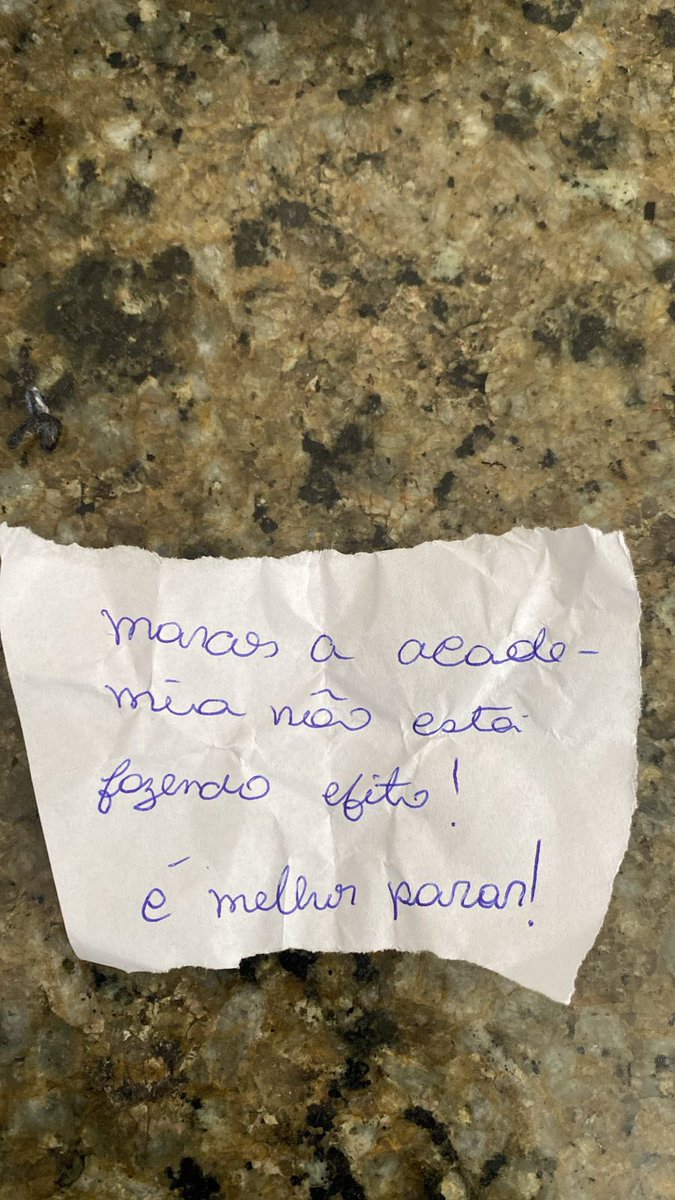 marcos a acade-
mia não está
fazendo efito!
é melhor parar!